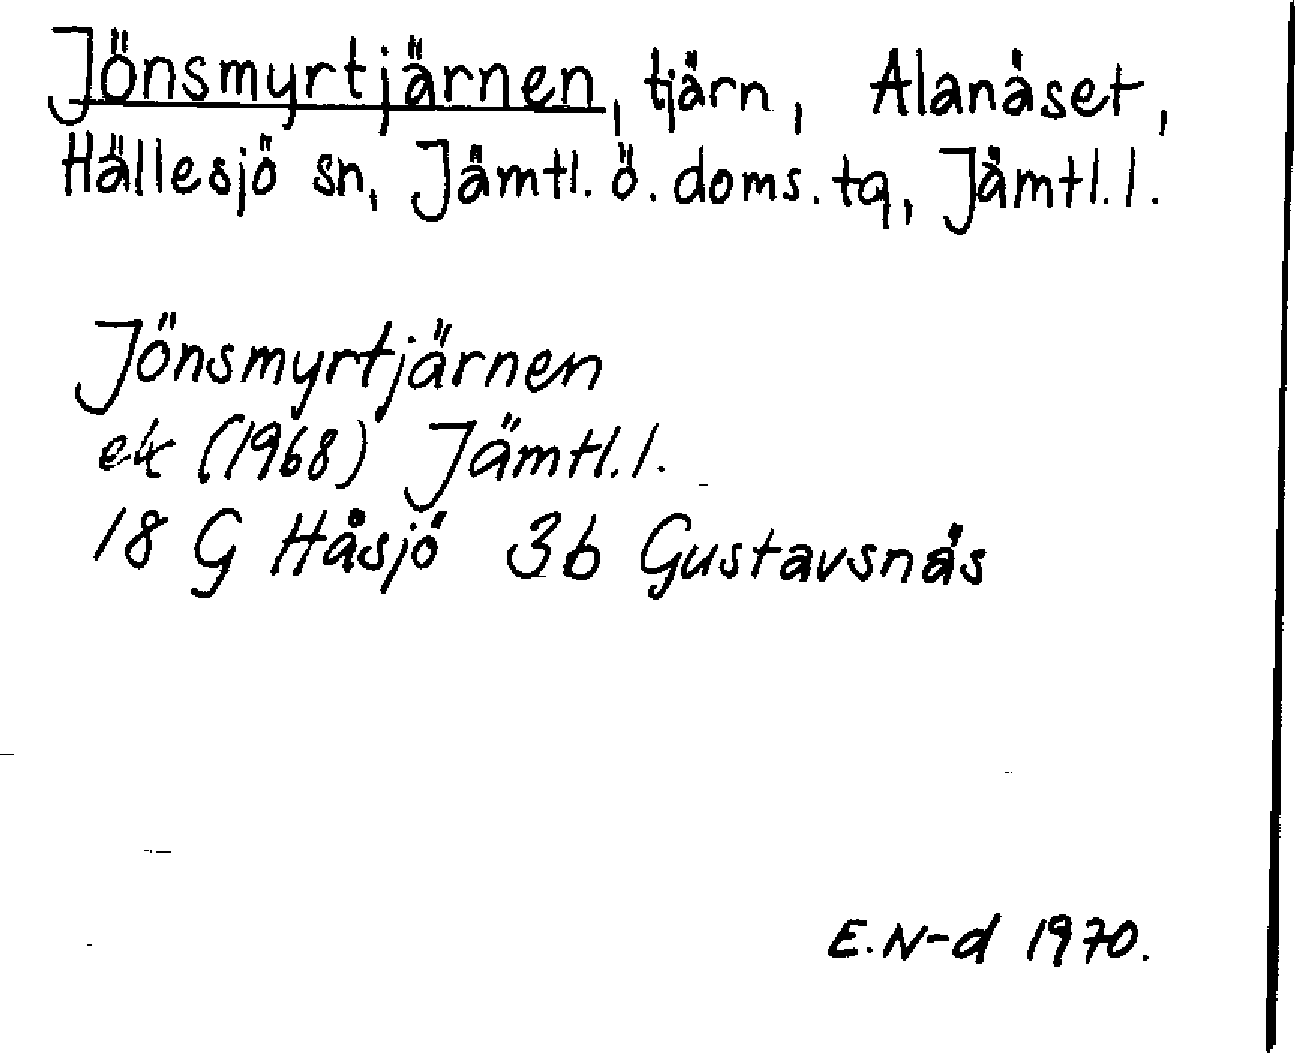 Jönsmyrtjärnen, tjärn, Alanäset,
Hällesjö sn, Jämtl. ö. doms. tg, Jämtl. l.
Jönsmyrtjärnen
ek (1968) Jämtl. l.
18 G Håsjö 3b Gustavsnäs
E. N-d 1970.